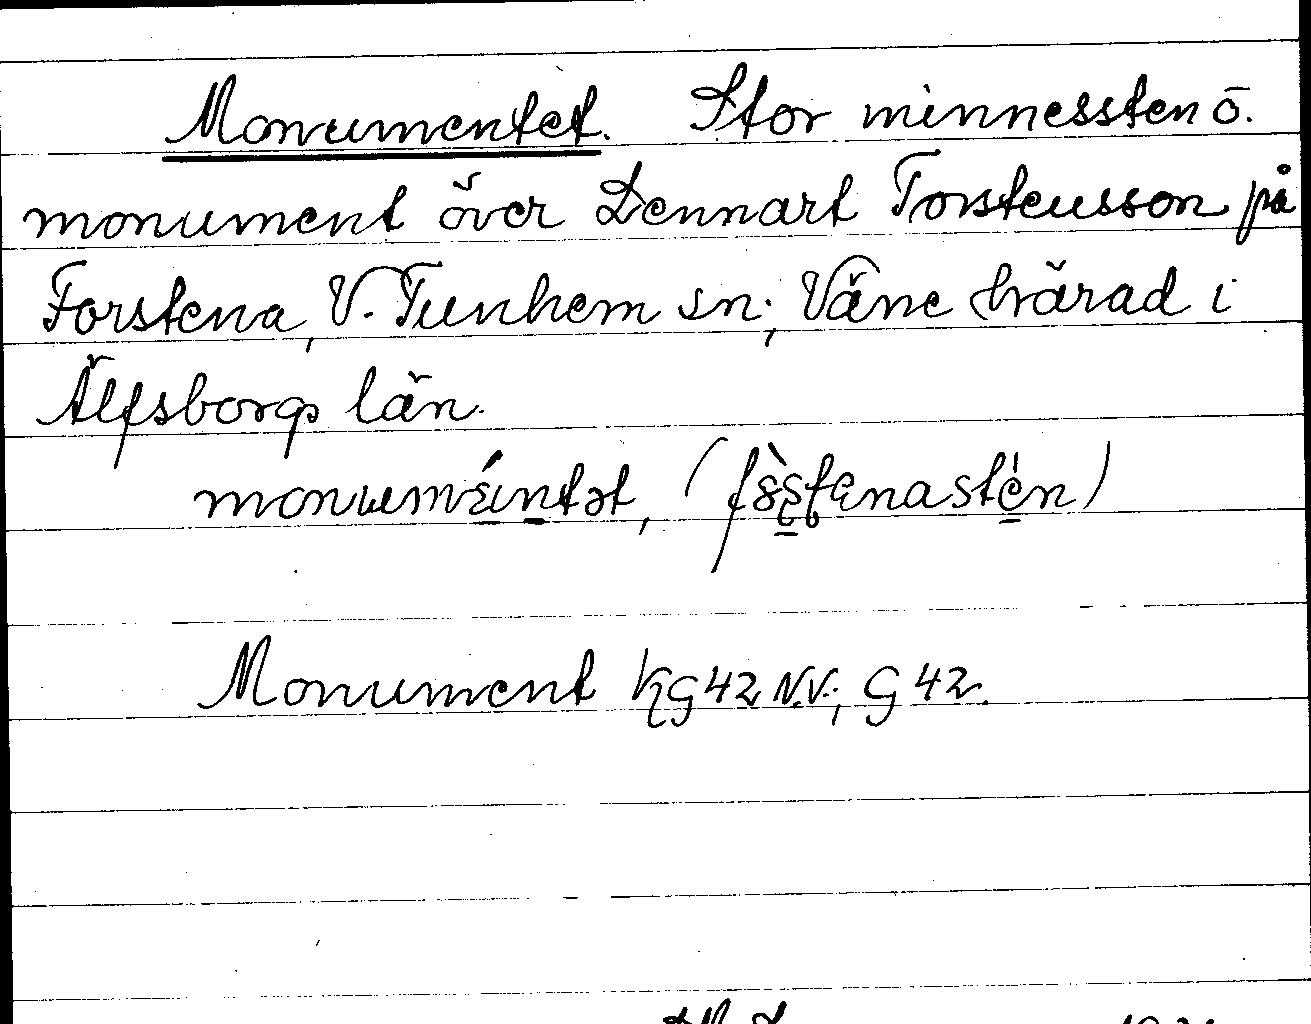 Monumentet. Stor minnessten o.
monument över Lennart Torstensson på
Forstena, V. Tunhem sn; Väne härad i
Älfsborgs län.
monumäntət, (
Monument KG42 N.V.; G 42.